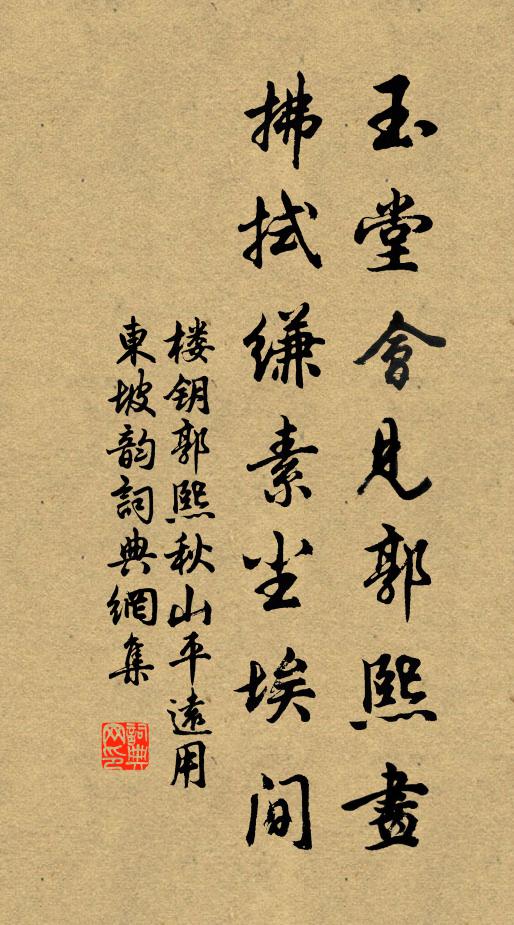 玉堂會見郭熙畫
拂拭縑素尘埃間
楼钥郭熙秋山平遠用
東坡韵詞典網集
詞典
网印